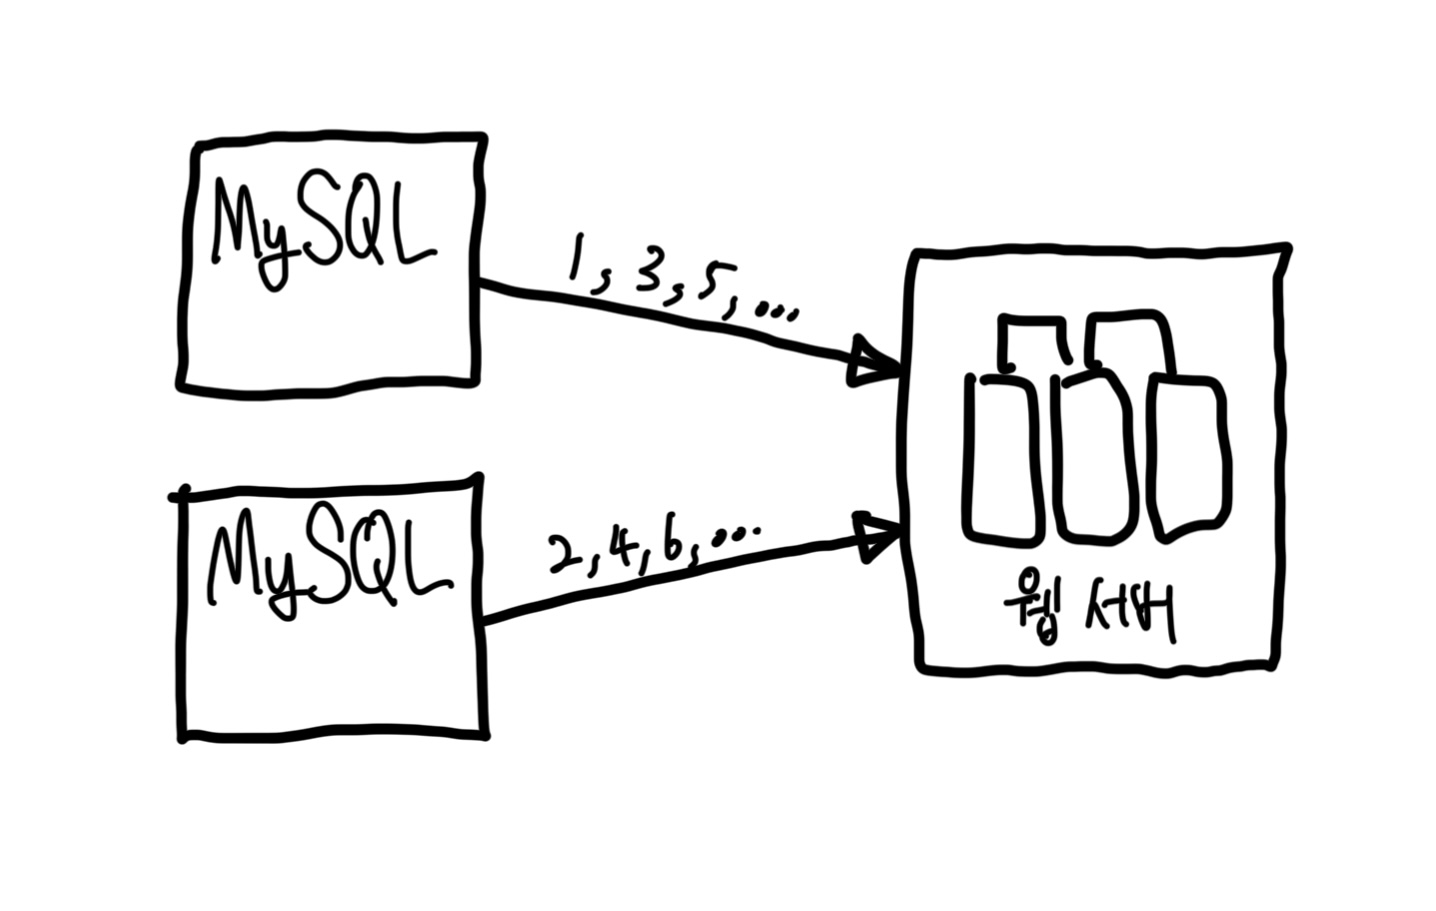 MySQL
1, 3, 5, ...
MySQL
2, 4, 6, ...
웹 서버